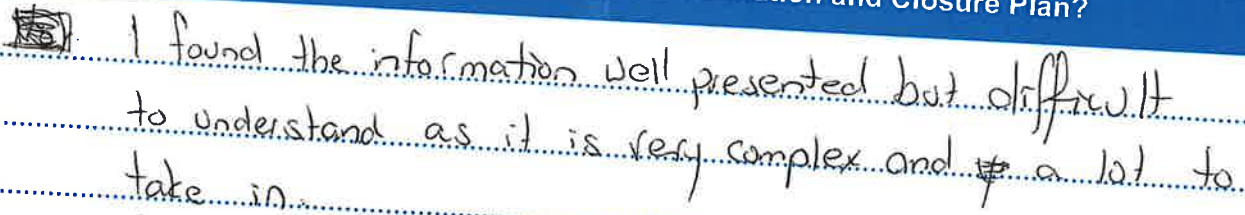 and Closure Plan?
I found the information well presented but difficult
to understand as it is very complex and a lot to
take in.